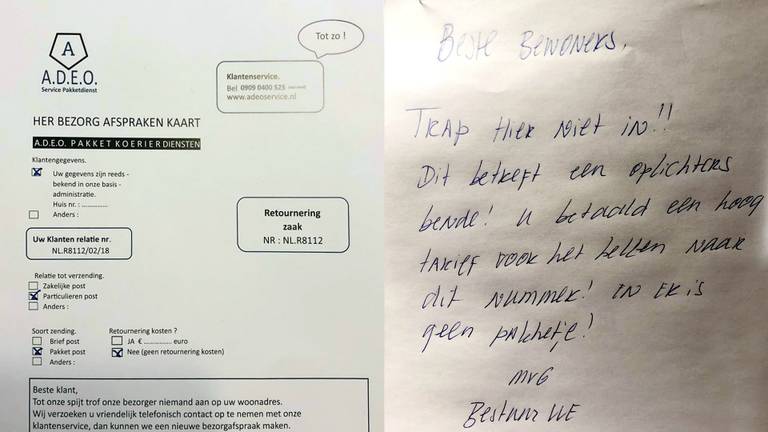 A
A.D.E.O.
Service Pakketdienst
Tot zo !
Klantenservice.
Bel 0909 0400 525
www.adeoservice.nl
HER BEZORG AFSPRAKEN KAART
A.D.E.O. PAKKET KOERIER DIENSTEN
Klantengegevens.
Uw gegevens zijn reeds -
bekend in onze basis -
administratie.
Huis nr. : ..............
Anders :
Retournering
zaak
NR : NL.R8112
Uw Klanten relatie nr.
NL.R8112/02/18
Relatie tot verzending.
Zakelijke post
Particulieren post
Anders :
Soort zending.
Brief post
Pakket post
Anders :
Retournering kosten ?
JA € .............. euro
Nee (geen retournering kosten)
Beste klant,
Tot onze spijt trof onze bezorger niemand aan op uw woonadres.
Wij verzoeken u vriendelijk telefonisch contact op te nemen met onze
klantenservice, dan kunnen we een nieuwe bezorgafspraak maken.
Beste Bewoners,
TRAP Hier niet in!!
Dit betreft een oplichters
bende! u betaald een hoog
tarief voor het bellen naar
dit nummer! en er is
geen pakketje!
mvG
Bestuur